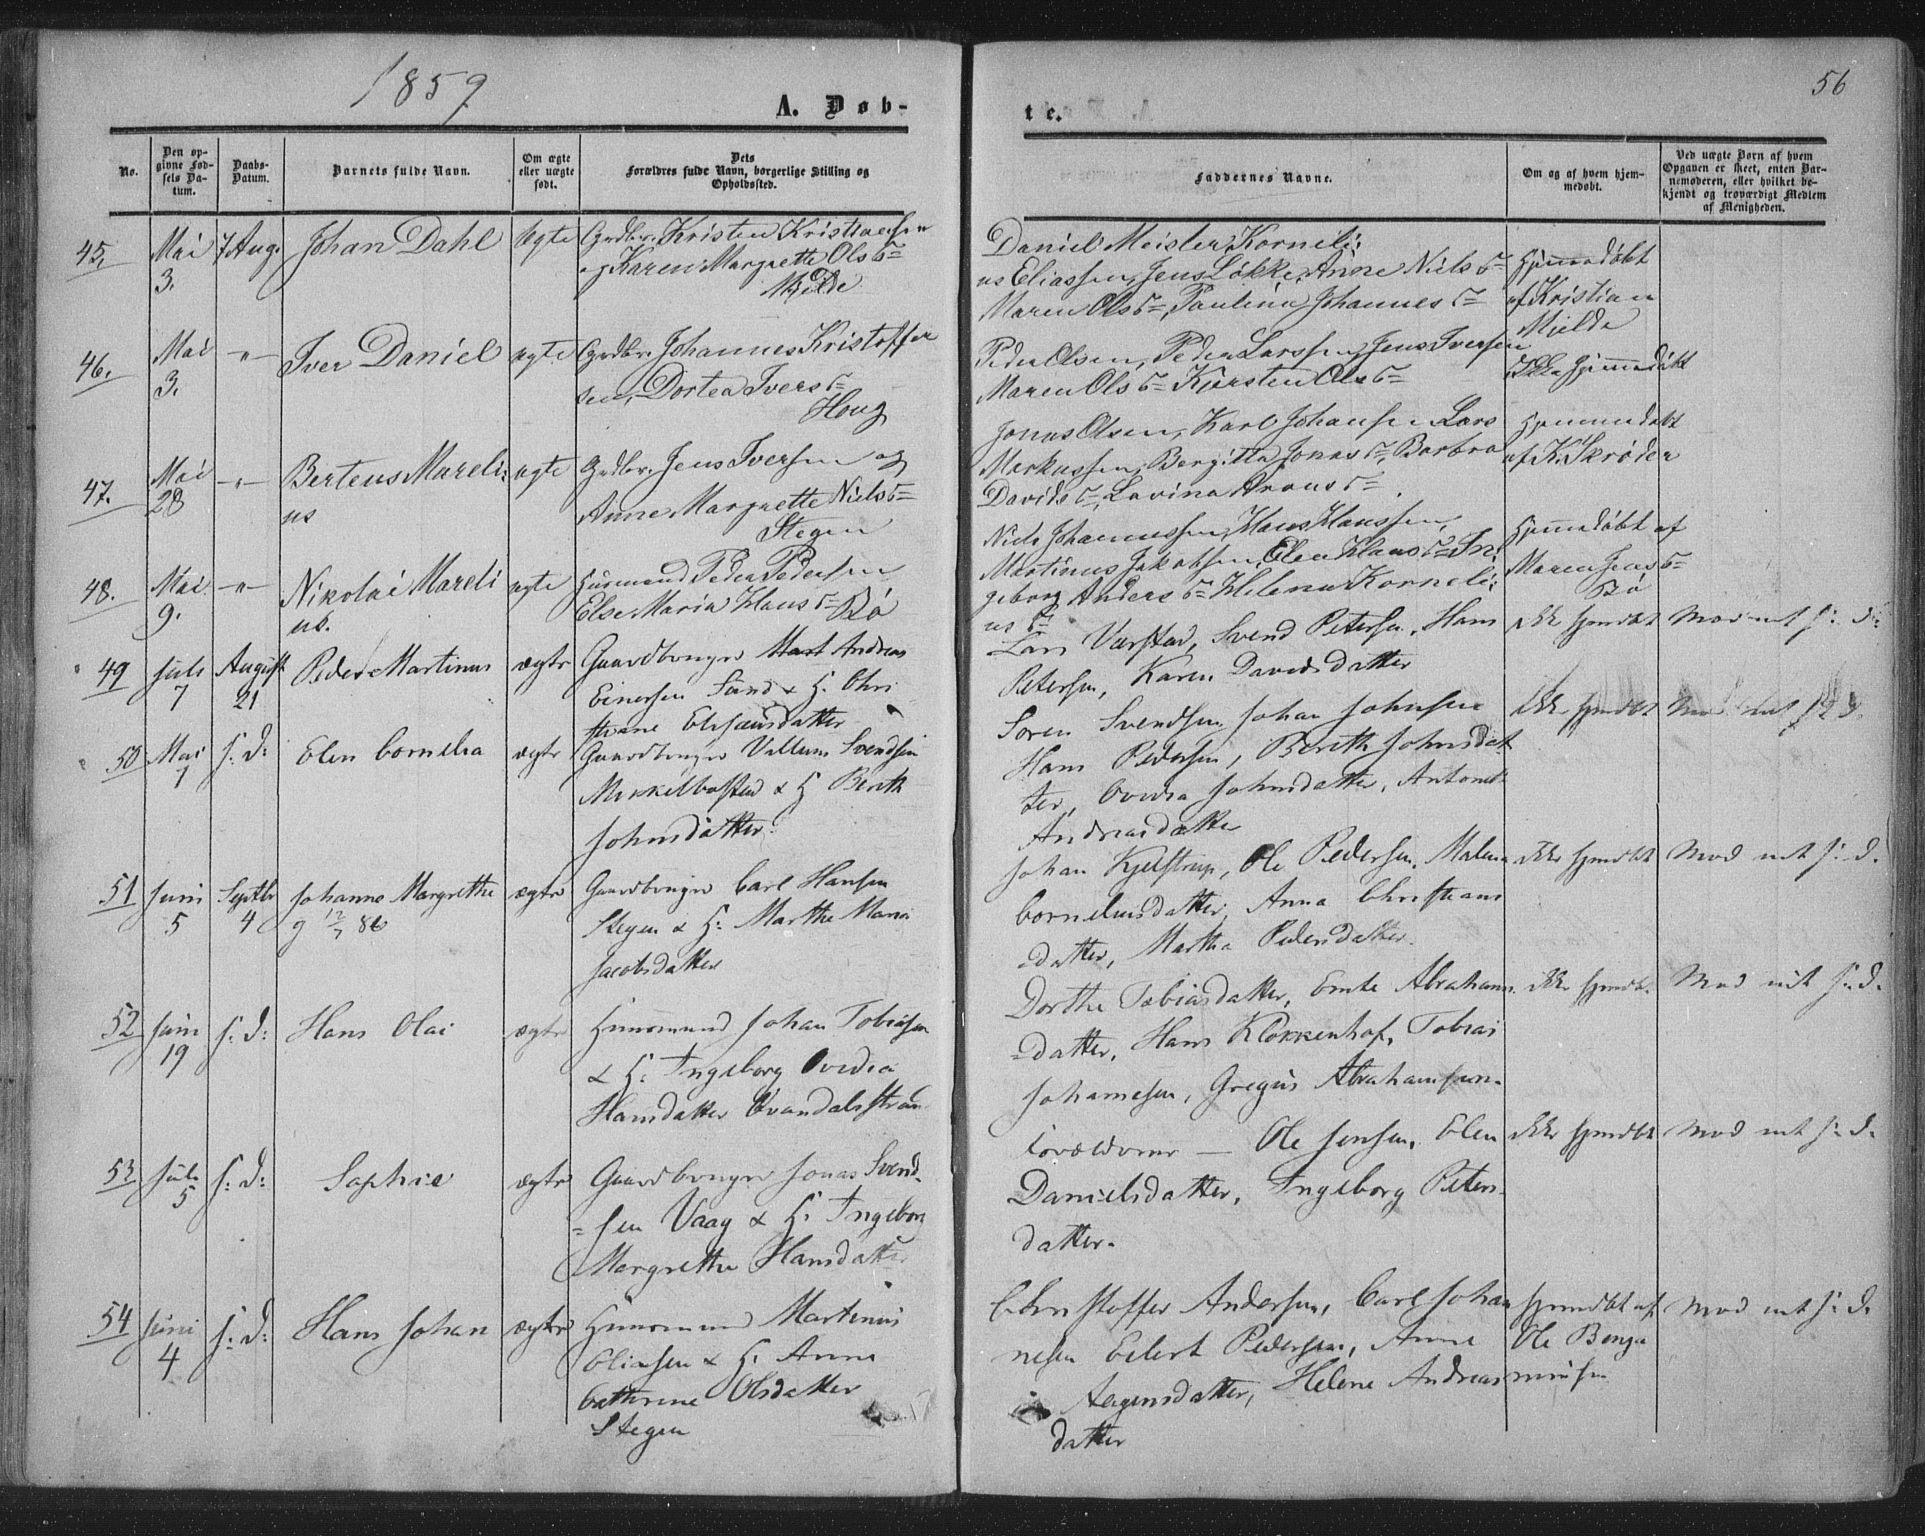 1859
A. Døb-
te.
56
No.
Den op-
givne Fød-
sels Da-
tum.
Daabs-
Datum.
Barnets fulde Navn.
Om ægte
eller uægte
født.
Dets
Forældres fulde Navn, borgerlige Stilling og
Opholdssted.
Faddernes Navne.
Om og af hvem hjem-
medøbt.
Ved uægte Børn af hvem
Opgaven er skeet, enten Bar-
nemoderen, eller hvilket be-
kjendt og troværdigt Medlem
af Menigheden.
45.
Mai
3.
7 Aug.
Johan Dahl
Ægte
Grdbr. Kristen Kristiansen
og Karen Margrette Ols D=
Mælde
Daniel Meister, Korneli:
us Eliassen, Jens Løkke, Anne Niels D=
Maren Ols D=, Paulina Johannes D=
Hjemmedøbt
af Kristian
Mjelde
46.
Mai
3.
-"-
Iver Daniel
ægte
Grdbr. Johannes Kristoffer
sen, Dortea Ivers D=
Houg
Peder Olsen, Peder Larssen, Jens Iversen
Maren Ols D= Kjersten Ols D=
Ikke Hjemmedøbt
47.
Mai
28
-"-
Berteus Mareli:
us
ægte
Grdbr. Jens Iversen og
Anne Margrette Niels D=
Stegen
Jonas Olsen, Karl Johansen Lars
Markussen, Bergitta Jonas D=, Barbra
Davids D=, Lovina Arons D=
Hjemmedøbt
af K. Skrøder
48.
Mai
9.
-"-
Nikolai Mareli
us.
ægte
Husmand Peder Pedersen
Else Maria Klaus D= Bø
Niels Johannessen, Hans Klaussen,
Martinus Jakobsen, Elen Klaus D= In:
geborg Anders D= Helena Korneli:
us D=
Hjemmedøbt af
Maren Jens D=
Bø
49
Juli
7
August
21
Peder Martinus
ægte
Gaardbruger Andreas
Einersen Sund & H. Chri
stiane Elisæusdatter
Lars Varstad, Svend Petersen, Hans
Petersen, Karen Davidsdatter
ikke hjemdbt
Mod ent s: d:
50
Mai
7
s: d:
Elen Cornelia
ægte
Gaardbruger Villum Svendsen
Mikkelbosted & H Berith
Johnsdatter.
Søren Svendsen, Johan Johnsen
Hans Pedersen, Berith Johnsdat
ter, Ovidia Johnsdatter, Antonet
Andreasdatter
Ikke hjemdbt
Mod ent s: d.
51
Juni
5
Septbr
4
Johanne Margrethe
g 12/7 86
ægte
Gaardbruger Carl Hansen
Stegen & H: Marthe Maria
Jacobsdatter
Johan Kjelstrup, Ole Pedersen, Malena
Corneliusdatter, Anna Christians
datter, Martha Pedersdatter.
ikke hjemdbt
Mod ent s: d.
52
Juni
19
s: d:
Hans Olai
ægte
Huusmand Johan Tobiasen
& H: Ingeborg Ovedia
Hansdatter
Dorthe Tobiasdatter, Abrahams
datter, Hans Klokkenhof, Tobias
Johannesen, Gregus Abrahamsen.
ikke hjemdbt.
Mod ent s: d.
53
Juli
5
s: d:
Sophie
ægte
Gaardbruger Jonas Svend-
=sen Vaag & H. Ingeborg
Margrethe Hansdatter
Forældrene — Ole Jensen, Elen
Danielsdatter, Ingeborg Peters-
datter.
Ikke hjemdbt
Mod ent s: d.
54
Juni
4
s: d:
Hans Johan
ægte
Huusmand Martinus
Oliasen & H. Anne
Cathrine Olsdatter
Stegen
Christoffer Andersen, Carl Johan
nesen Eilert Pedersen, Anne
Aagensdatter, Helene Andreas
datter
hjemdbt af
Ole Benja
minsen
Mod ent s: d.